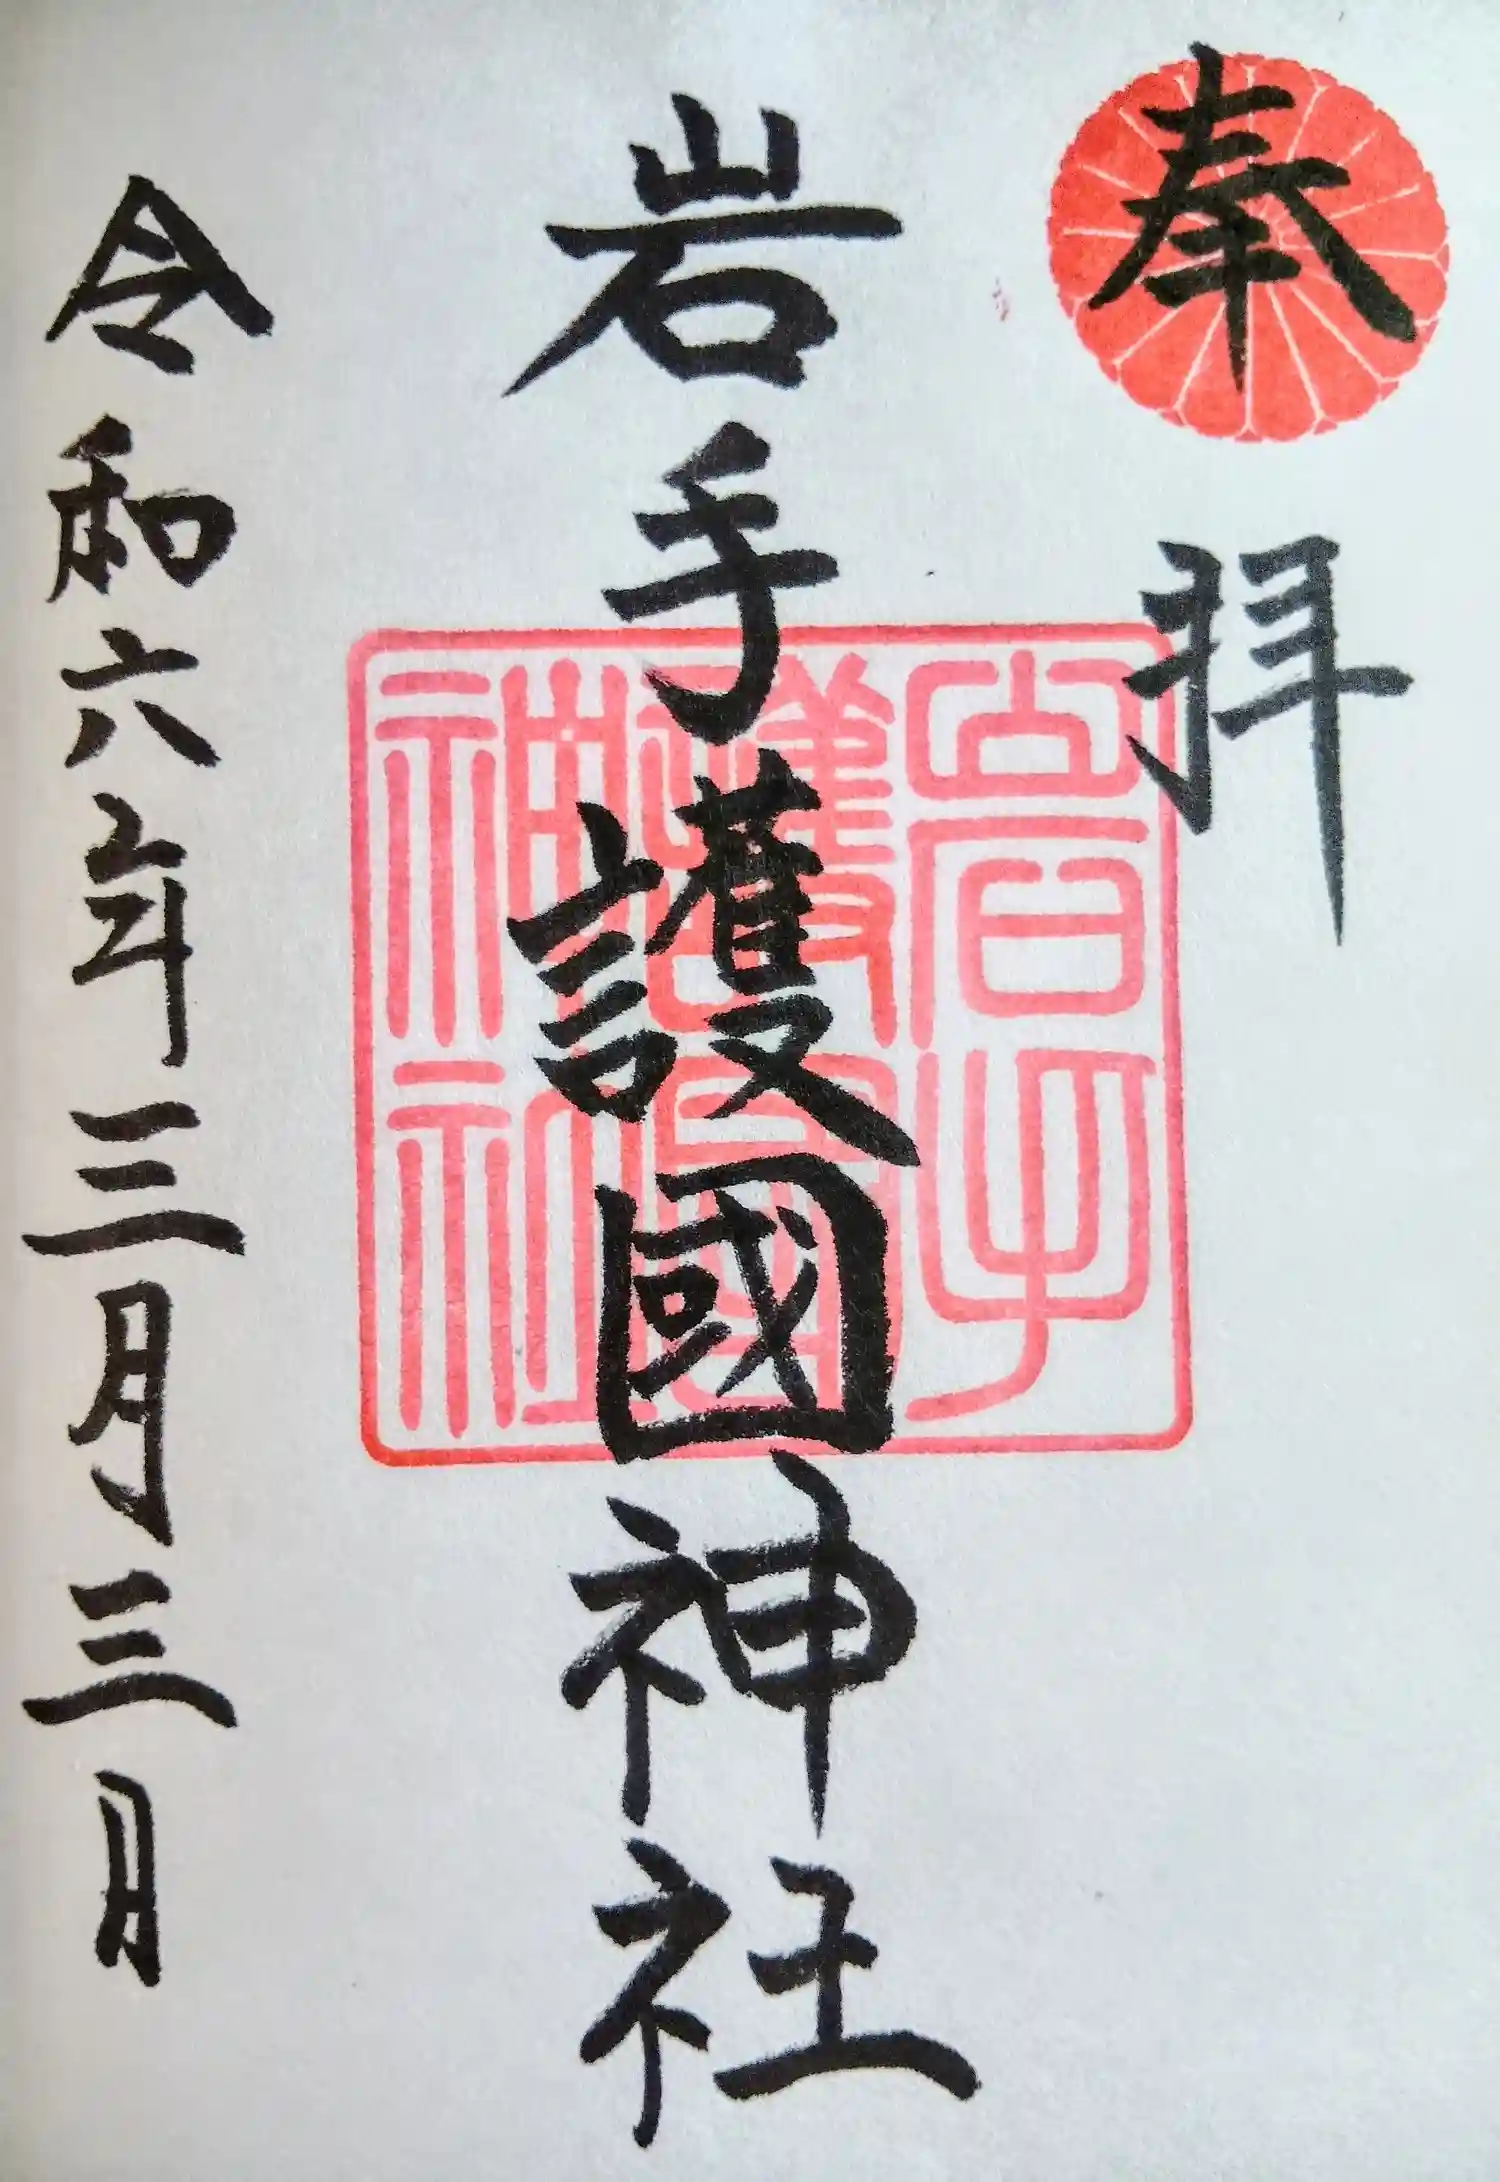 奉拝
岩手護國神社
岩手護國神社
令和六年三月三日